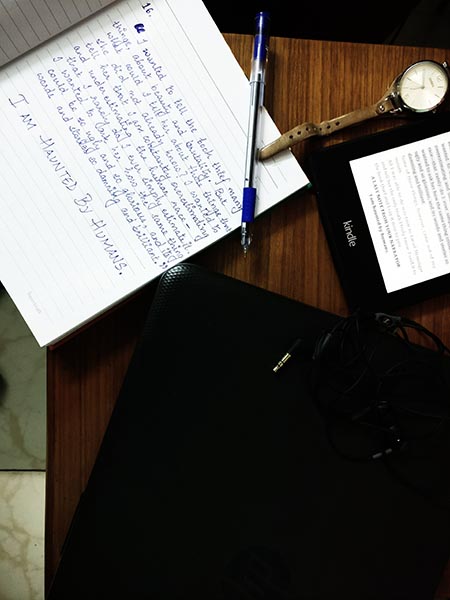 16.
“ I wanted to tell the book thief many
things, about beauty and brutality. But
what could I tell her about those things
she did not already know? I wanted to
tell her that I am constantly overestimating
and underestimating the human race -
that I rarely ever simply estimate it.
I wanted to ask her how the same thing
could be so ugly and so glorious, and its
words and stories so damning and brilliant.”
I AM HAUNTED BY HUMANS.
kindle
A LAST NOTE FROM YOUR NARRATOR
I am haunted by humans.
hp